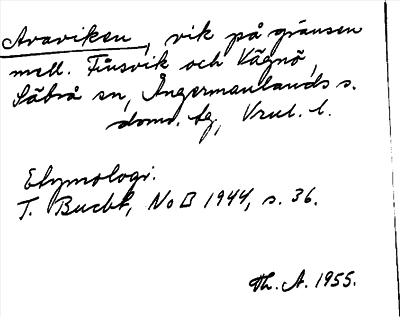 Araviken, vik på gränsen
mell. Fürsvik och Vägnö,
Säbrå sn, Ångermanlands s.
doms. tg, Vrnl. l.
Etymologi:
T. Bucht, NoB 1944, s. 36.
Th. A. 1955.